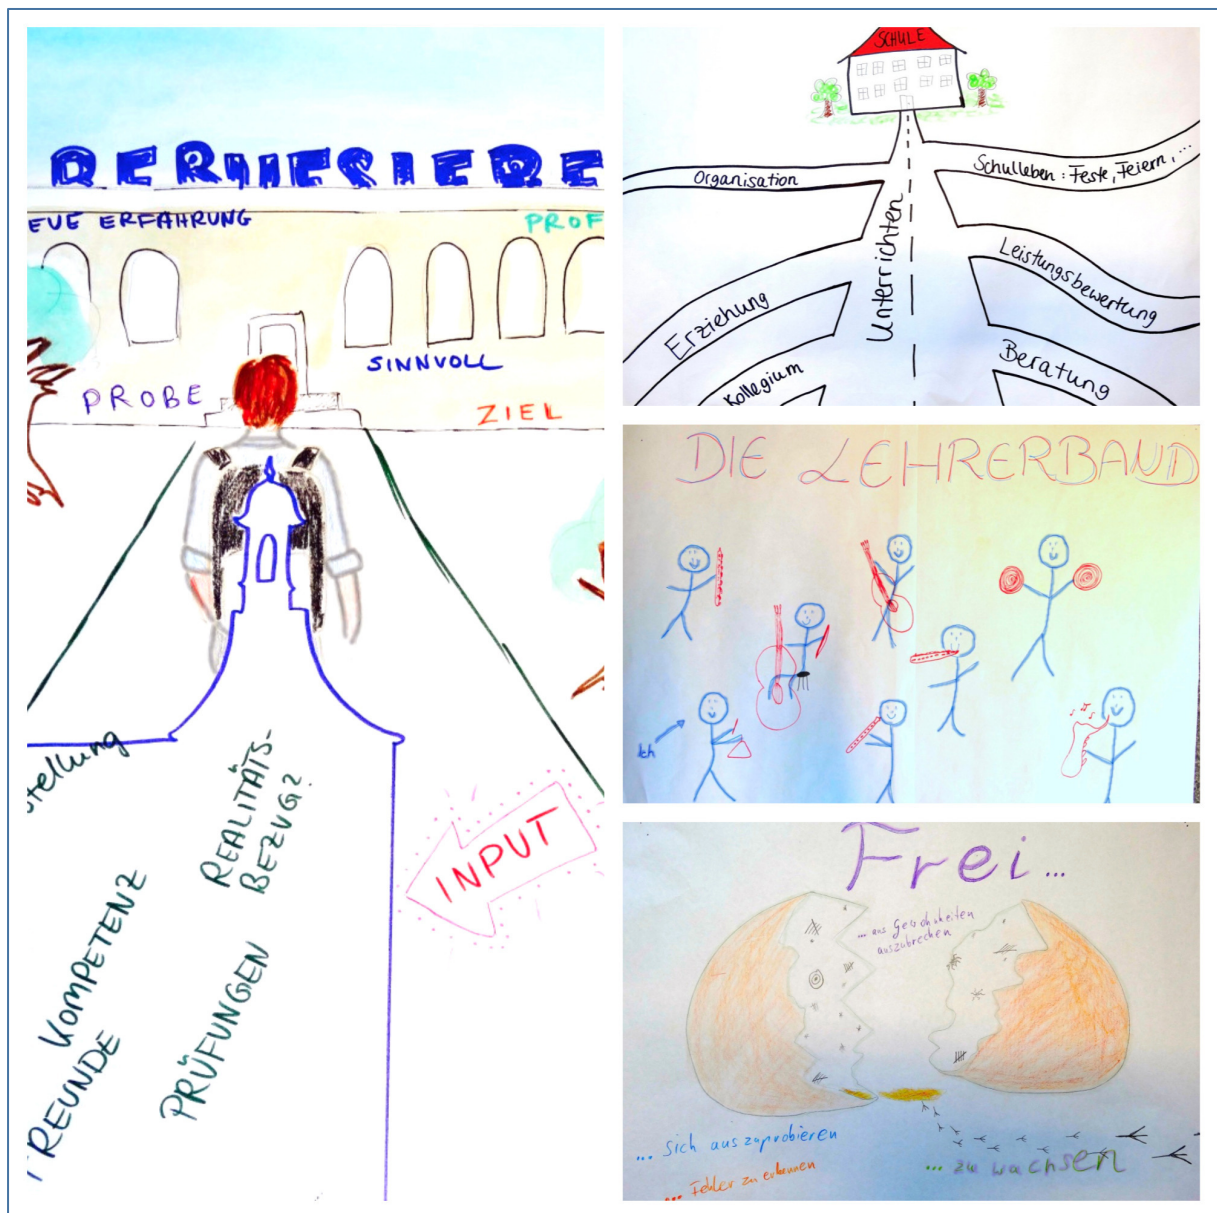 BERUFSLEBE
EUE ERFAHRUNG
PROF
SINNVOLL
PROBE
ZIEL
stellung
REALITÄTS-
BEZUG?
INPUT
KOMPETENZ
FREUNDE
PRÜFUNGEN
SCHULE
Organisation
Schulleben: Feste, Feiern, ...
Unterrichten
Erziehung
Leistungsbewertung
Kollegium
Beratung
DIE LEHRERBAND
Ich
Frei...
... aus Gewohnheiten
auszubrechen
... sich auszuprobieren
... Fehler zu erkennen
... zu wachsen